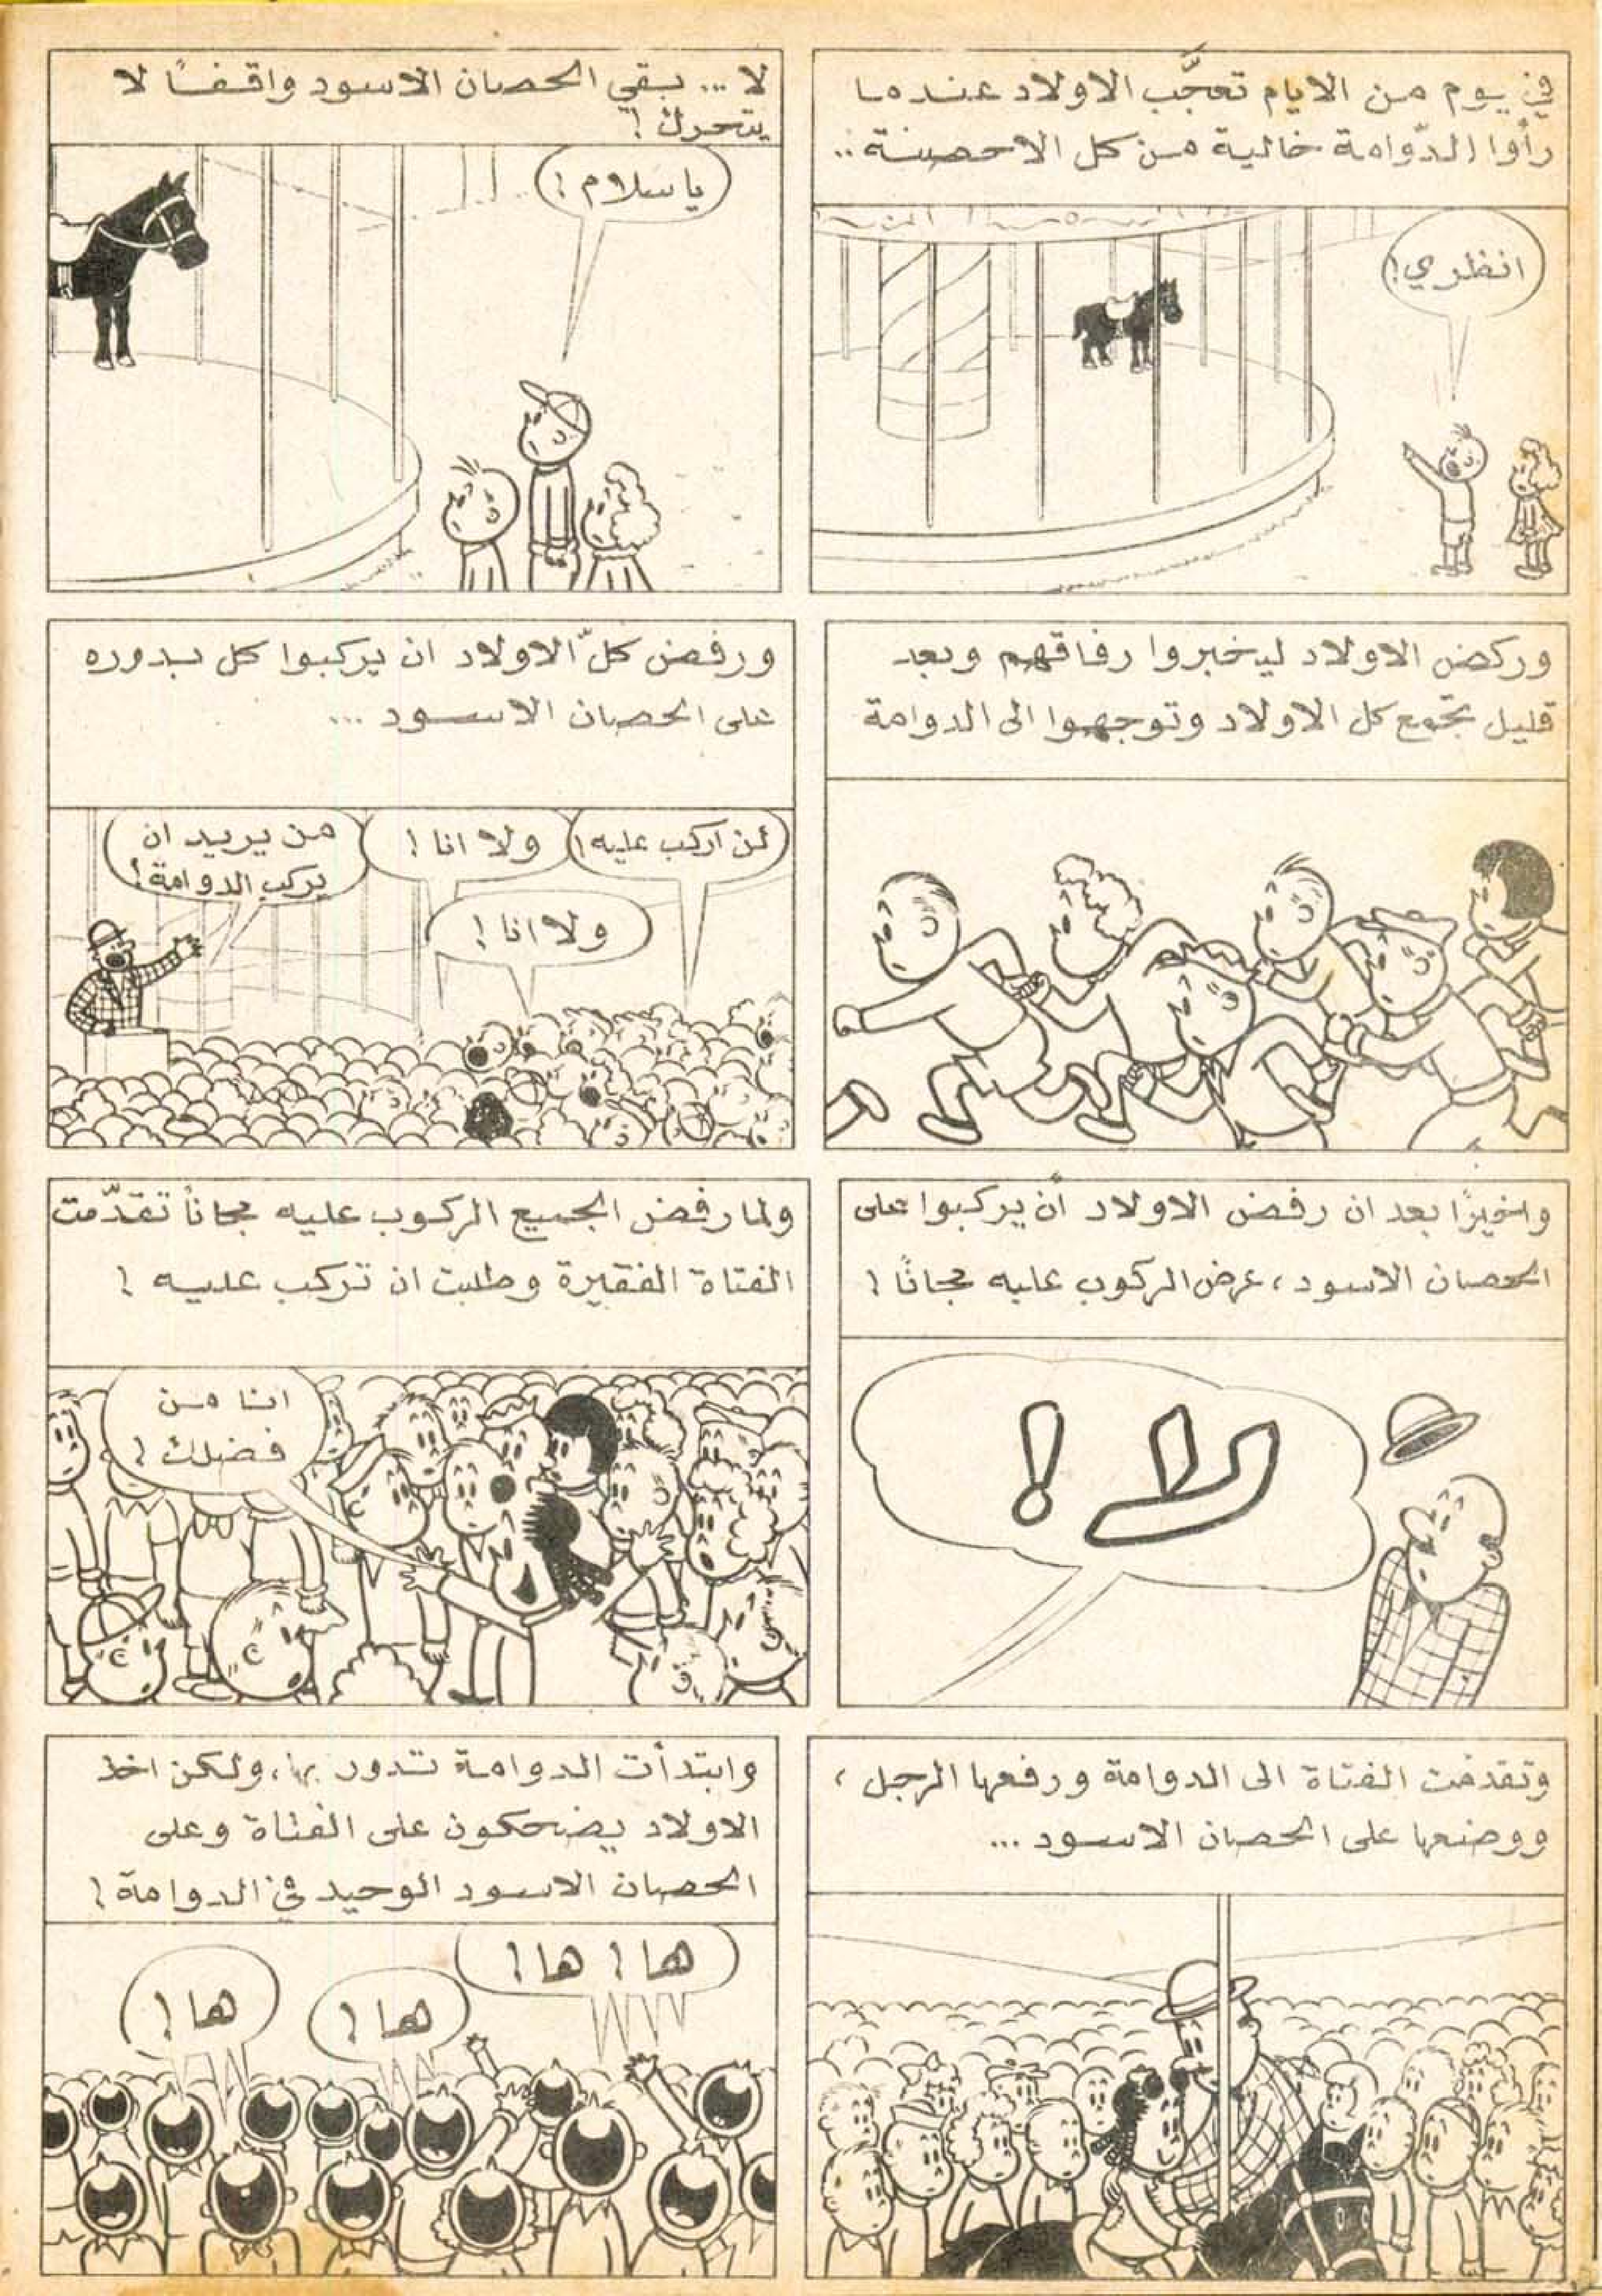 في يوم من الايام تعجَّب الاولاد عندما
رأوا الدّوامة خالية من كل الاحصنة..
انظري!
لا... بقي الحصان الاسود واقفًا لا
يتحرك!
يا سلام!
وركض الاولاد ليخبروا رفاقهم وبعد
قليل تجمع كل الاولاد وتوجهوا الى الدوامة
ورفض كلّ الاولاد ان يركبوا كل بدوره
على الحصان الاسود ...
لن اركب عليه!
ولا انا!
ولا انا!
من يريد ان
يركب الدوامة!
واخيرًا بعد ان رفض الاولاد أن يركبوا على
الحصان الاسود، عرض الركوب عليه مجانًا!
لا!
ولما رفض الجميع الركوب عليه مجانًا تقدّمت
الفتاة الفقيرة وطلبت ان تركب عليه!
انا من
فضلك!
وتقدمت الفتاة الى الدوامة ورفعها الرجل،
ووضعها على الحصان الاسود ...
وابتدأت الدوامة تدور بها، ولكن اخذ
الاولاد يضحكون على الفتاة وعلى
الحصان الاسود الوحيد في الدوامة!
ها! ها!
ها!
ها!